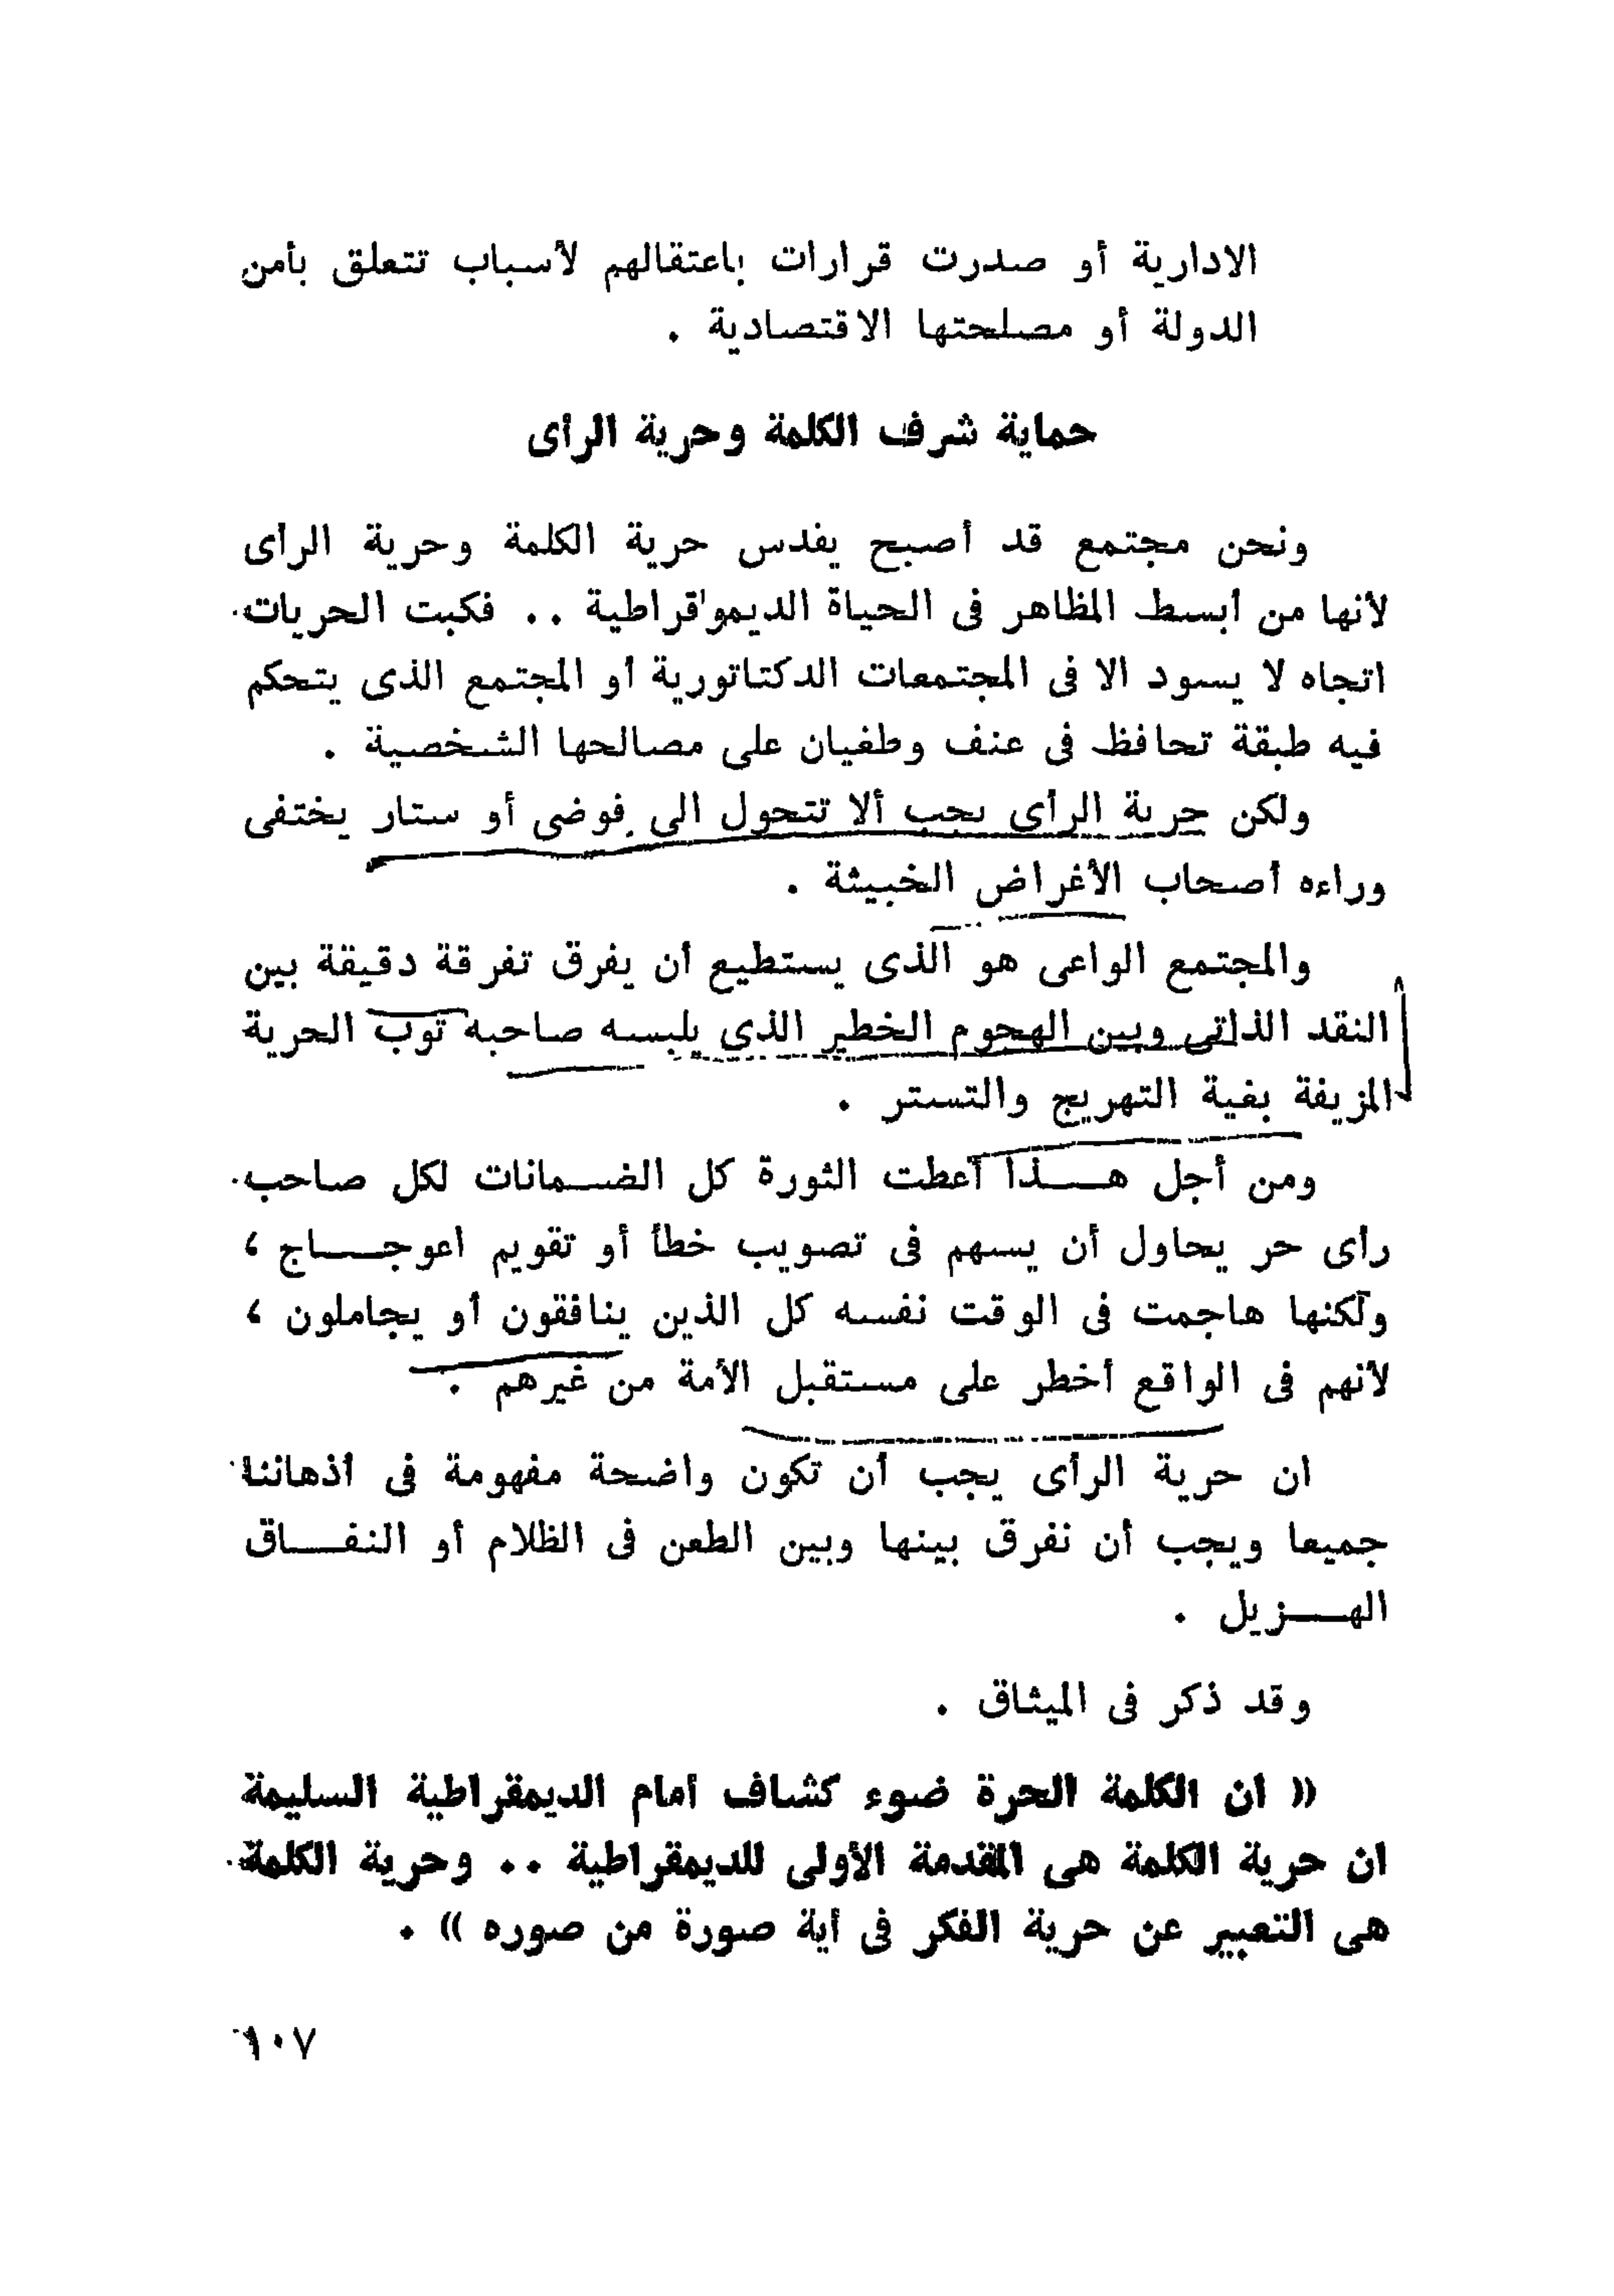 الادارية أو صدرت قرارات باعتقالهم لأسباب تتعلق بأمن
الدولة أو مصلحتها الاقتصادية .
حماية شرف الكلمة وحرية الرأى
ونحن مجتمع قد أصبح يقدس حرية الكلمة وحرية الرأى
لأنها من أبسط المظاهر فى الحياة الديموقراطية .. فكبت الحريات
اتجاه لا يسود الا فى المجتمعات الدكتاتورية أو المجتمع الذى يتحكم
فيه طبقة تحافظ فى عنف وطغيان على مصالحها الشخصية .
ولكن حرية الرأى يجب ألا تتحول الى فوضى أو ستار يختفى
وراءه أصحاب الأغراض الخبيثة .
والمجتمع الواعى هو الذى يستطيع أن يفرق تفرقة دقيقة بين
النقد الذاتى وبين الهجوم الخطير الذى يلبسه صاحبه ثوب الحرية
المزيفة بغية التهريج والتستر .
ومن أجل هــذا أعطت الثورة كل الضــمانات لكل صاحب
رأى حر يحاول أن يسهم فى تصويب خطأ أو تقويم اعوجــاج ،
ولكنها هاجمت فى الوقت نفسه كل الذين ينافقون أو يجاملون ،
لأنهم فى الواقع أخطر على مستقبل الأمة من غيرهم .
ان حرية الرأى يجب أن تكون واضحة مفهومة فى أذهاننا
جميعا ويجب أن نفرق بينها وبين الطعن فى الظلام أو النفــاق
الهــزيل .
وقد ذكر فى الميثاق .
« ان الكلمة الحرة ضوء كشاف أمام الديمقراطية السليمة
ان حرية الكلمة هى المقدمة الأولى للديمقراطية .. وحرية الكلمة
هى التعبير عن حرية الفكر فى أية صورة من صوره » .
١٠٧